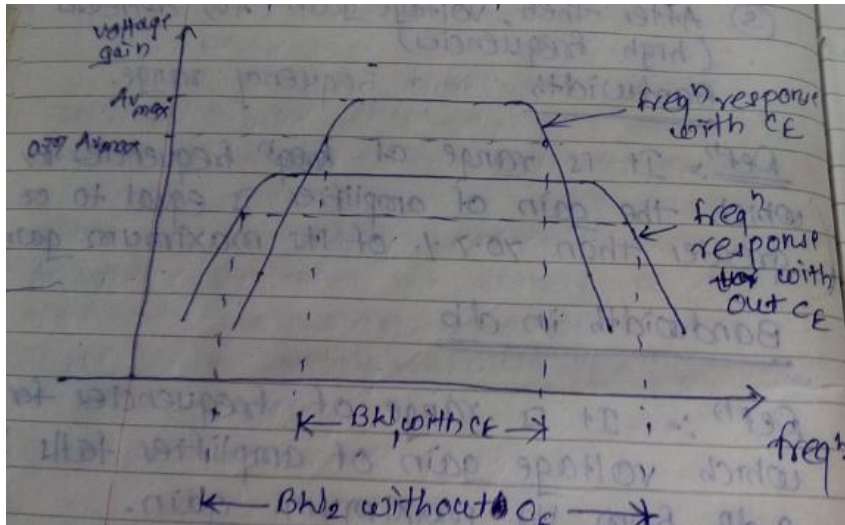 voltage
gain
Av
max
0.707 Avmax
freqⁿ response
with CE
freqⁿ
response
with
out CE
BW₁ with CE
freqⁿ
BW₂ without